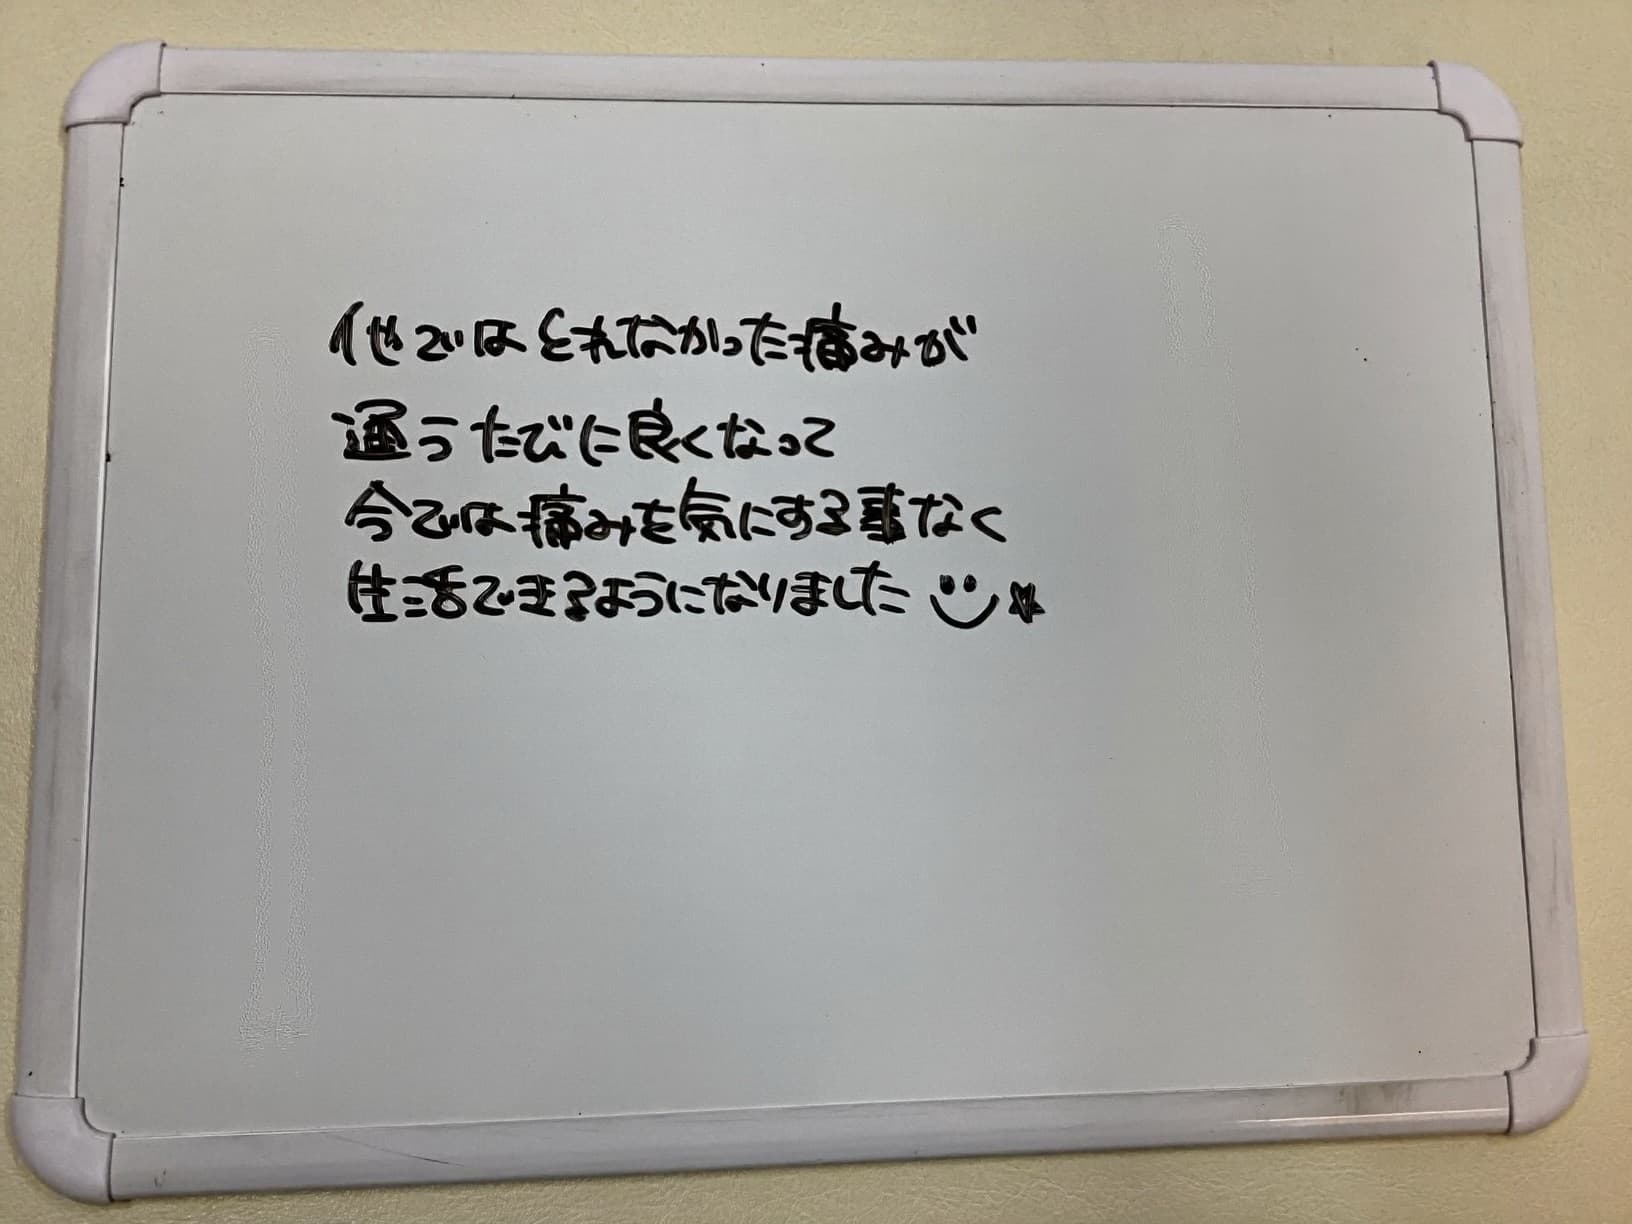 他ではとれなかった痛みが
通うたびに良くなって
今では痛みを気にする事なく
生活できるようになりました